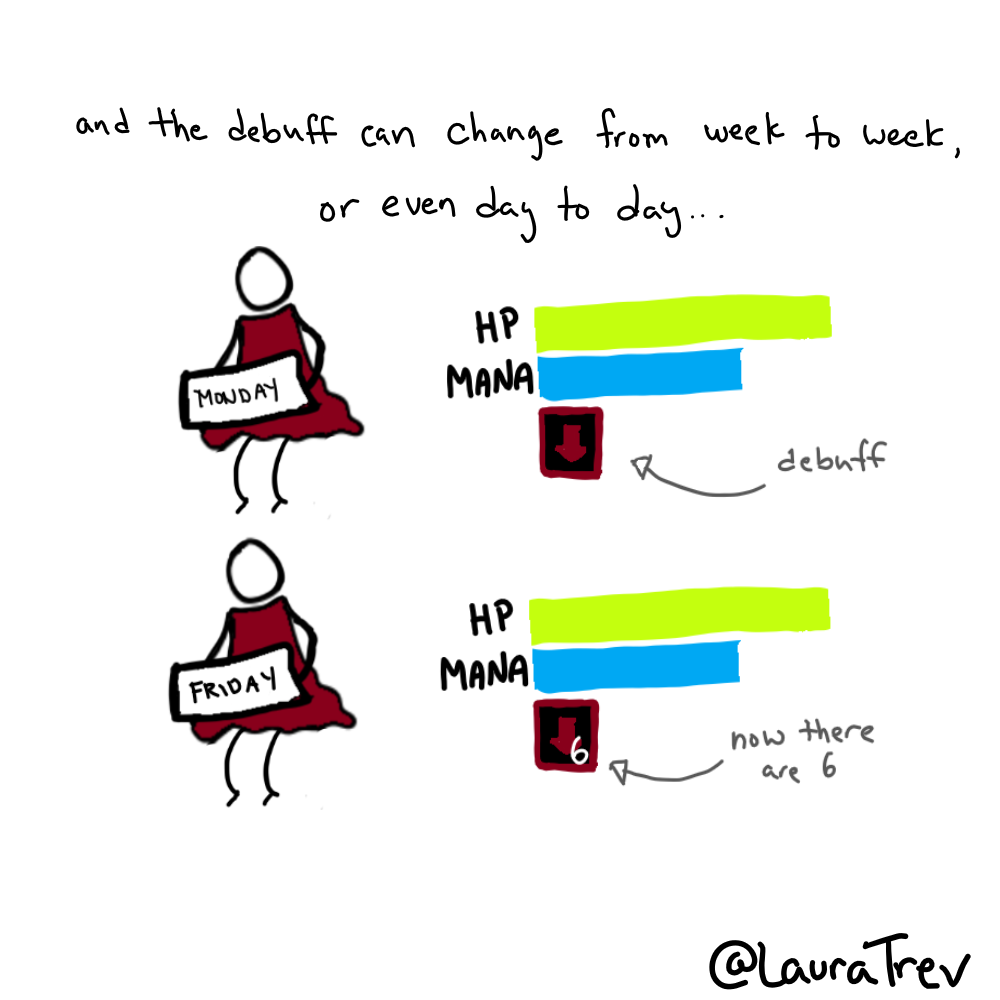 and the debuff can change from week to week,
or even day to day...
MONDAY
HP
MANA
debuff
FRIDAY
HP
MANA
6
now there
are 6
@LauraTrev